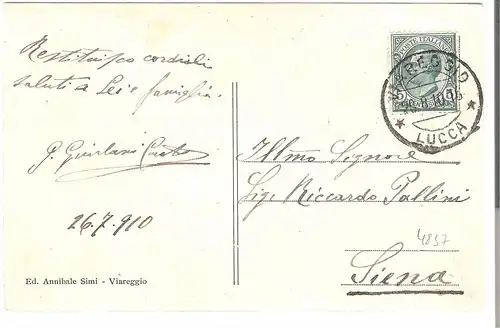 Restituisco cordiali
saluti a Lei e famiglia.
G.
26.7.910
Ed. Annibale Simi - Viareggio
POSTE ITALIANE
VIAREGGIO
LUCCA
Illmo Signore
Sig. Riccardo Pallini
Siena
4837